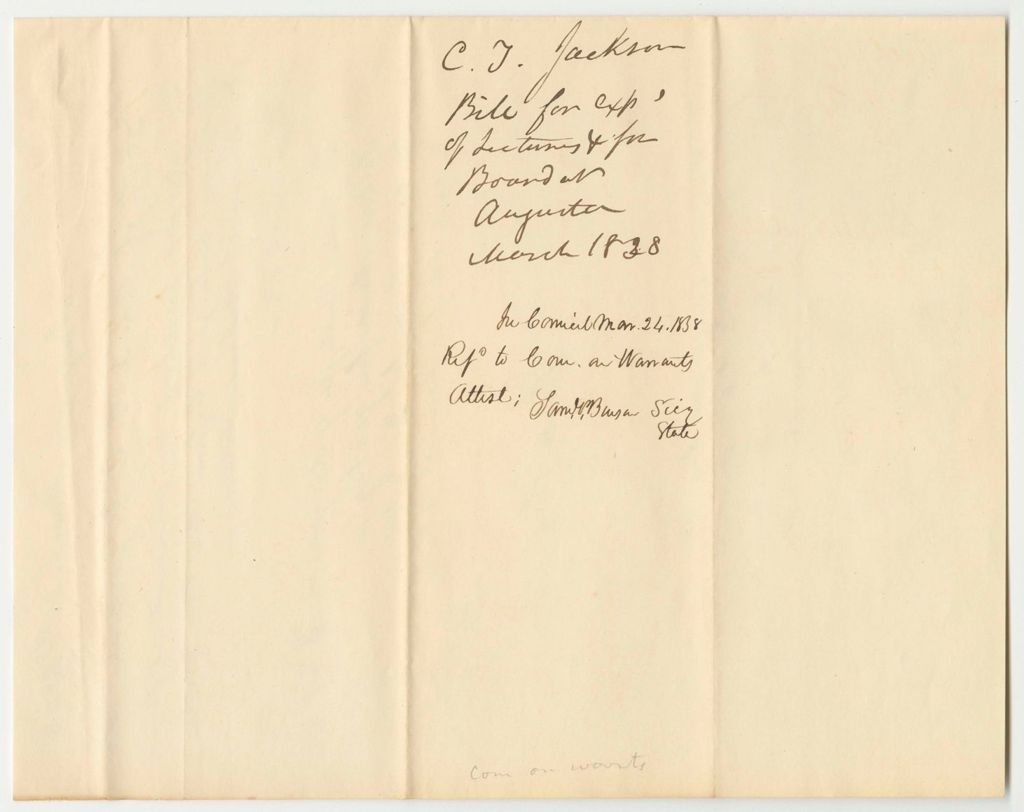 C. T. Jackson
Bill for exp's
of Lectures & for
Board at
Augusta
March 1838
In Council Mar. 24. 1838
Refd to Com. on Warrants
Attest; Saml P. Benson Secy
State
Com on warrts